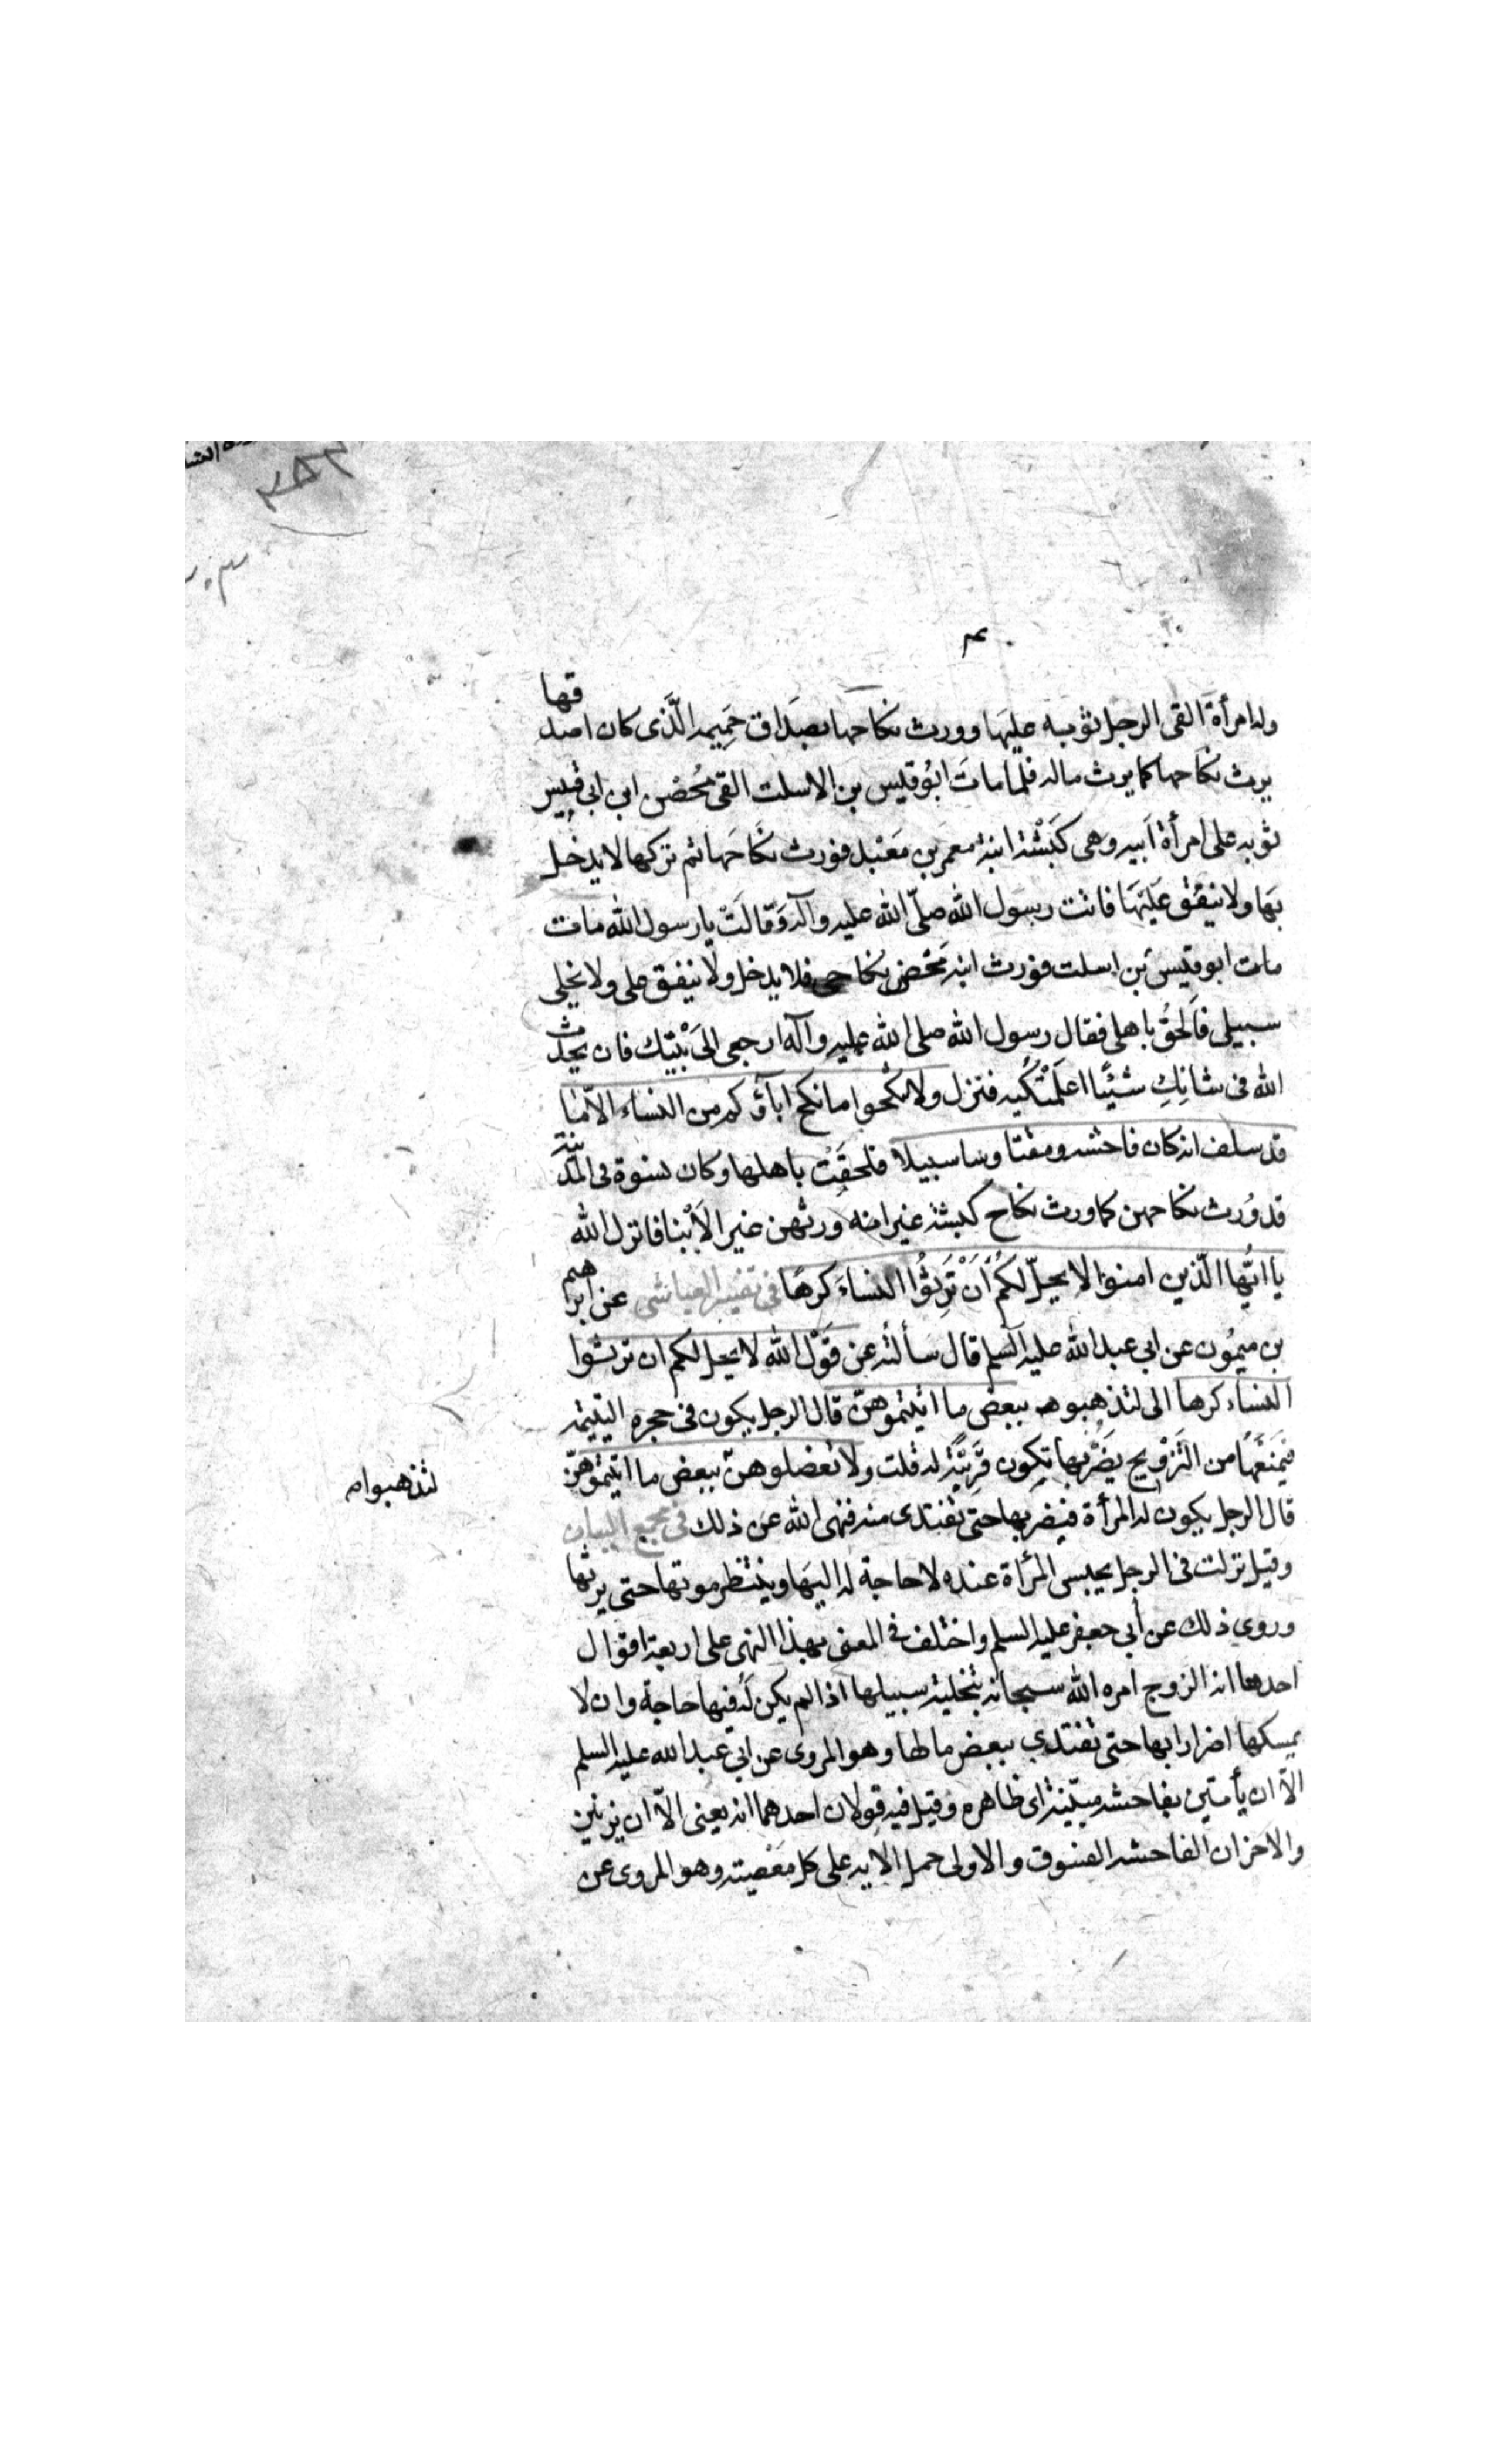 وله امرأة القى الرجل ثوبه عليها وورث نكاحها بصداق حميمه الّذى كان اصدقها
يرث نكاحها كما يرث ماله فلما مات ابو قيس بن الاسلت القى محُصن ابن ابى قيس
ثوبه على امرأة ابيه وهى كَبْشة ابنة معمر بن مَعْبد فورث نكاحها ثم تركها لا يدخل
بها ولا ينفق عليها فاتت رسول الله صلّى الله عليه وآله وقالت يا رسول الله مات
مات ابو قيس بن اسلت فورث ابنه محُصن نكاحى فلا يدخل ولا ينفق على ولا يخلى
سبيلى فالحق باهلى فقال رسول الله صلى الله عليه وآله ارجعى الى بيتك فان يحدث
الله فى شانكِ شيئًا اعلمتكيه فنزل ولا تنكحوا ما نكح اباؤكم من النساء الاّ ما
قد سلف انه كان فاحشه ومقتا وسا سبيلا فلحقت باهلها وكان نسوة فى المدينة
قد ورث نكاحهن كما ورث نكاح كبشة غير انه ورثهن غير الابنا فانزل الله
يا ايّها الّذين امنوا لا يحلّ لكم أن ترثُوا النساءَ كرهًا فى تفسير العياشى عن ابراهيم
بن ميمُون عن ابى عبد الله عليه السلم قال سألته عن قول الله لا يحل لكم ان ترثوا
النساء كرها الى لتذهبوا ببعض ما اتيتموهنّ قال الرجل يكون فى حجره اليتيمه
فيمنعها من التزويج يضر بها تكون قريبة له قلت ولا تعضلوهنّ ببعض ما اتيتموهنّ
لتذهبوا
قال الرجل يكون له المرأة فيضر بها حتى تفتدى منه فنهى الله عن ذلك فى مجمع البيان
وقيل نزلت فى الرجل يحبس المرأة عنده لا حاجة له اليها وينتظر موتها حتى يرثها
وروى ذلك عن أبى جعفر عليه السلم واختلف فى المعنى بهذا النهى على اربعة اقوال
احدها انه الزوج امره الله سبحانه بتخلية سبيلها اذا لم يكن له فيها حاجة وان لا
يمسكها اضرارا بها حتى تفتدي ببعض مالها وهو المروى عن ابي عبد الله عليه السلم
الاّ ان يأتين بفاحشه مبيّنة اى ظاهره وقيل فيه قولان احدهما انه يعنى الاّ ان يزنين
والاخر ان الفاحشه الفسوق والاولى حمل الايه على كل معصيته وهو المروى عن